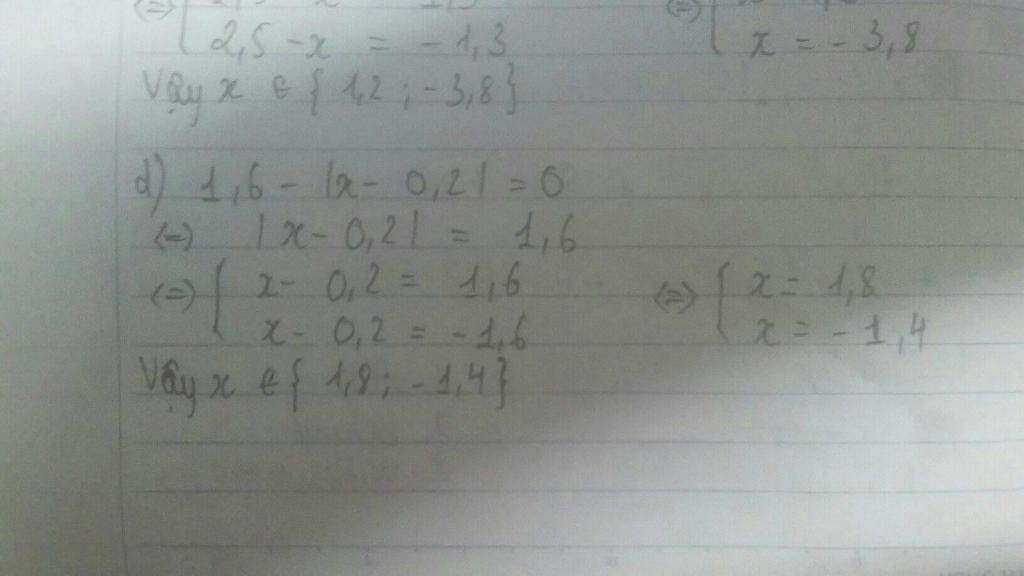 2,5 - x = -1,3 x = -3,8
Vậy x ∈ { 1,2 ; -3,8 }
d) 1,6 - |x - 0,2| = 0
(=) |x - 0,2| = 1,6
(=) { x - 0,2 = 1,6 (=) { x = 1,8
x - 0,2 = -1,6 x = -1,4
Vậy x ∈ { 1,8 ; -1,4 }